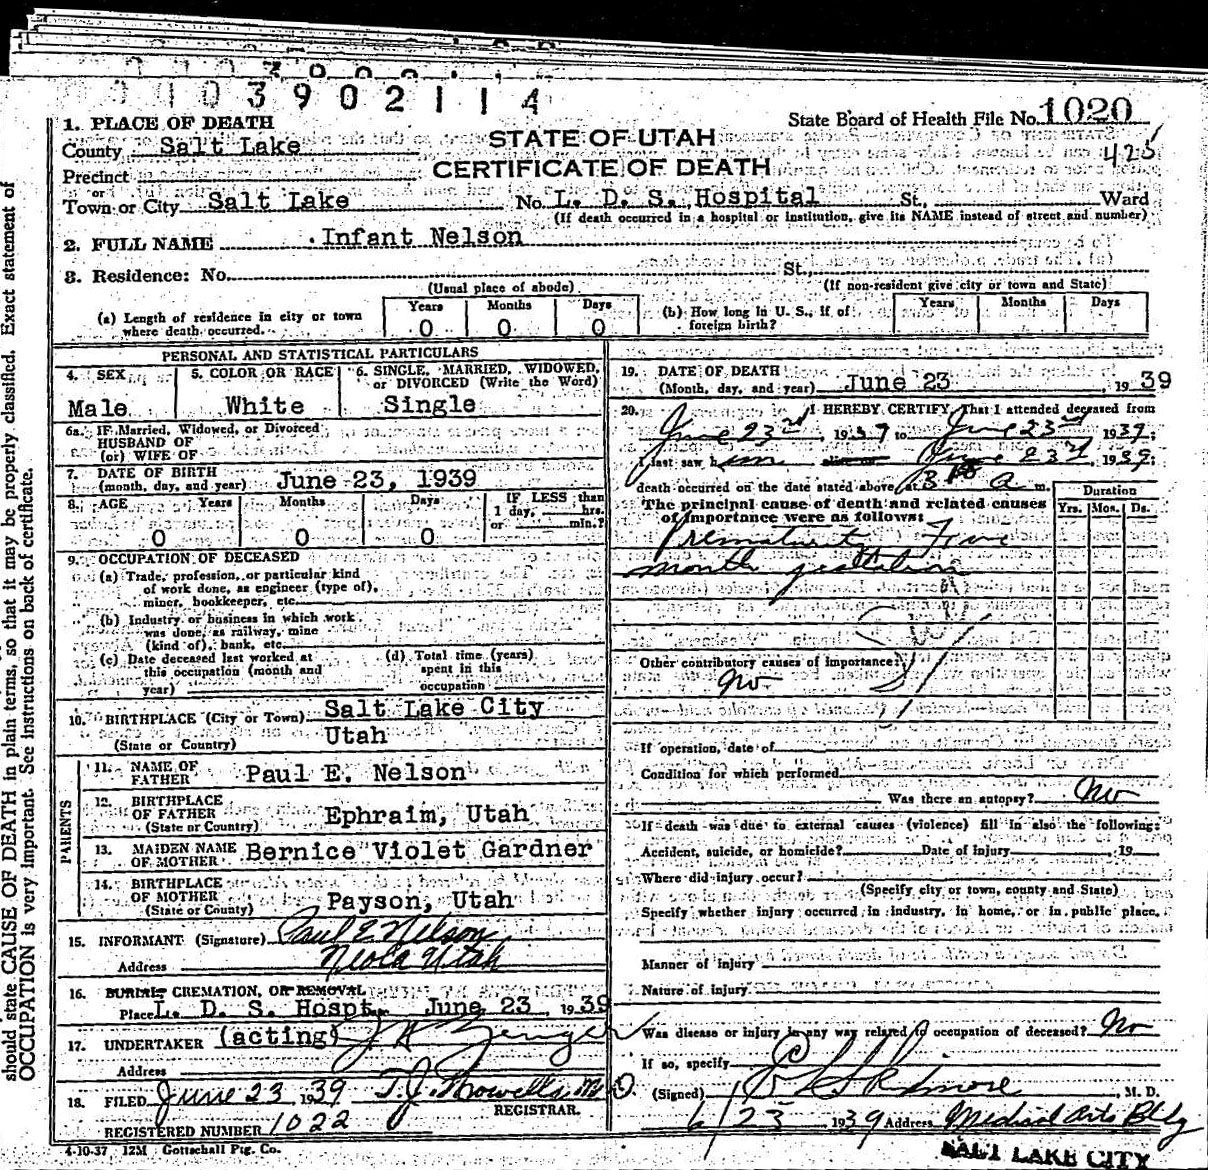 03902114
State Board of Health File No. 1020
425
1. PLACE OF DEATH
STATE OF UTAH
County Salt Lake
CERTIFICATE OF DEATH
Precinct
or
Town or City Salt Lake No. L. D. S. Hospital St., Ward
(If death occurred in a hospital or institution, give its NAME instead of street and number)
2. FULL NAME Infant Nelson
3. Residence: No. St.,
(Usual place of abode) (If non-resident give city or town and State)
(a) Length of residence in city or town where death occurred. Years 0 Months 0 Days 0
(b) How long in U. S., if of foreign birth? Years Months Days
PERSONAL AND STATISTICAL PARTICULARS
4. SEX Male
5. COLOR OR RACE White
6. SINGLE, MARRIED, WIDOWED, or DIVORCED (Write the Word) Single
6a. IF Married, Widowed, or Divorced
HUSBAND OF
(or) WIFE OF
7. DATE OF BIRTH
(month, day, and year) June 23, 1939
8. AGE Years 0 Months 0 Days 0
IF LESS than
1 day, hrs.
or min.?
9. OCCUPATION OF DECEASED
(a) Trade, profession, or particular kind
of work done, as engineer (type of),
miner, bookkeeper, etc.
(b) Industry or business in which work
was done, as railway, mine
(kind of), bank, etc.
(c) Date deceased last worked at
this occupation (month and
year)
(d) Total time (years)
spent in this
occupation
10. BIRTHPLACE (City or Town) Salt Lake City
(State or Country) Utah
PARENTS
11. NAME OF
FATHER Paul E. Nelson
12. BIRTHPLACE
OF FATHER
(State or Country) Ephraim, Utah
13. MAIDEN NAME
OF MOTHER Bernice Violet Gardner
14. BIRTHPLACE
OF MOTHER
(State or County) Payson, Utah
15. INFORMANT (Signature) Paul E Nelson
Address Neola Utah
16. BURIAL, CREMATION, OR REMOVAL
Place L. D. S. Hospt. June 23, 1939
17. UNDERTAKER (acting) J H Zenger
Address
18. FILED June 23 1939 T. J. Howells, M.D.
REGISTRAR.
REGISTERED NUMBER 1022
4-10-37 12M Gottschall Ptg. Co.
19. DATE OF DEATH
(Month, day, and year) June 23, 1939
20. I HEREBY CERTIFY, That I attended deceased from
June 23rd, 1939 to June 23rd 1939;
I last saw him alive on June 23rd, 1939;
death occurred on the date stated above, at 3 a m.
The principal cause of death and related causes
of importance were as follows:
Duration
Yrs. Mos. Ds.
Premature Five
month gestation
Other contributory causes of importance:
No
If operation, date of
Condition for which performed
Was there an autopsy? No
If death was due to external causes (violence) fill in also the following:
Accident, suicide, or homicide? Date of injury , 19
Where did injury occur?
(Specify city or town, county and State)
Specify whether injury occurred in industry, in home, or in public place.
Manner of injury
Nature of injury
Was disease or injury in any way related to occupation of deceased? No
If so, specify
(Signed) Skidmore, M. D.
6/23 1939 Address Medical Arts Bldg
SALT LAKE CITY
should state CAUSE OF DEATH in plain terms, so that it may be properly classified. Exact statement of
OCCUPATION is very important. See instructions on back of certificate.